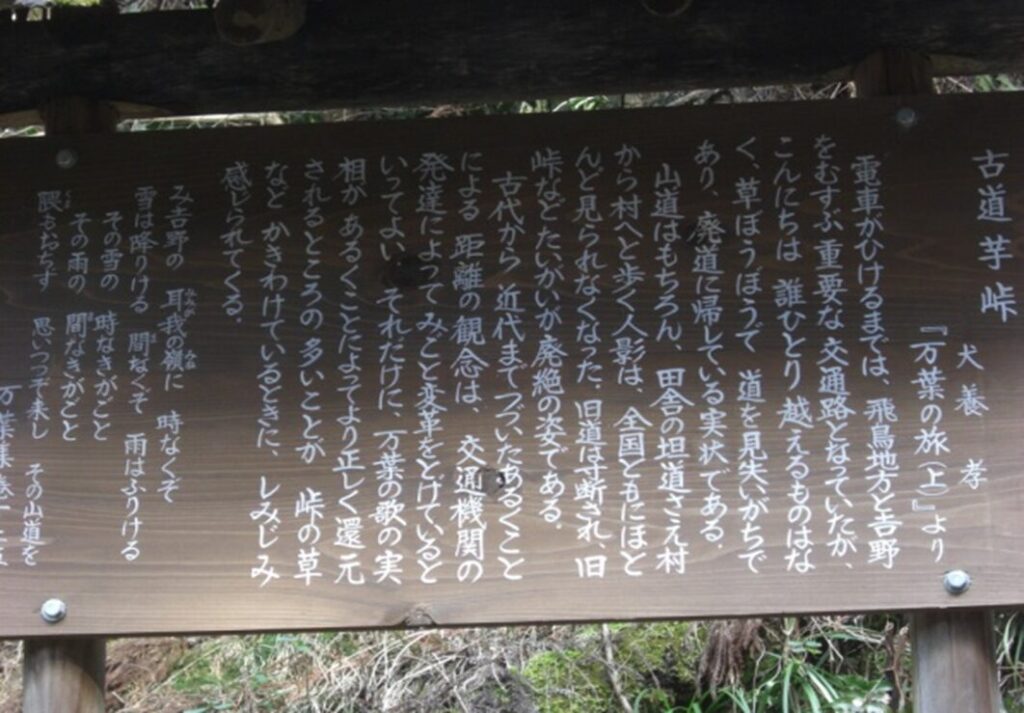 古道 芋峠
犬養 孝
『万葉の旅(上)』より
電車がひけるまでは、飛鳥地方と吉野
をむすぶ重要な交通路となっていたが、
こんにちは 誰ひとり越えるものはな
く、草ぼうぼうで 道を見失いがちで
あり、廃道に帰している実状である。
山道はもちろん、田舎の坦道さえ村
から村へと歩く人影は、全国ともにほと
んど見られなくなった、旧道は寸断され、旧
峠などたいがいが廃絶の姿である。
古代から 近代までつづいたあるくこと
による 距離の観念は、交通機関の
発達によって みごと変革をとげていると
いってよい、それだけに、万葉の歌の実
相が あるくことによってより正しく還元
されるところの多いことが 峠の草
など かきわけているときに、しみじみ
感じられてくる。
み吉野の 耳我の嶺に 時なくぞ
雪は降りける 間なくぞ 雨はふりける
その雪の 時なきがごと
その雨の 間なきがごと
隈もおちず 思いつつぞ来し その山道を
万葉集巻